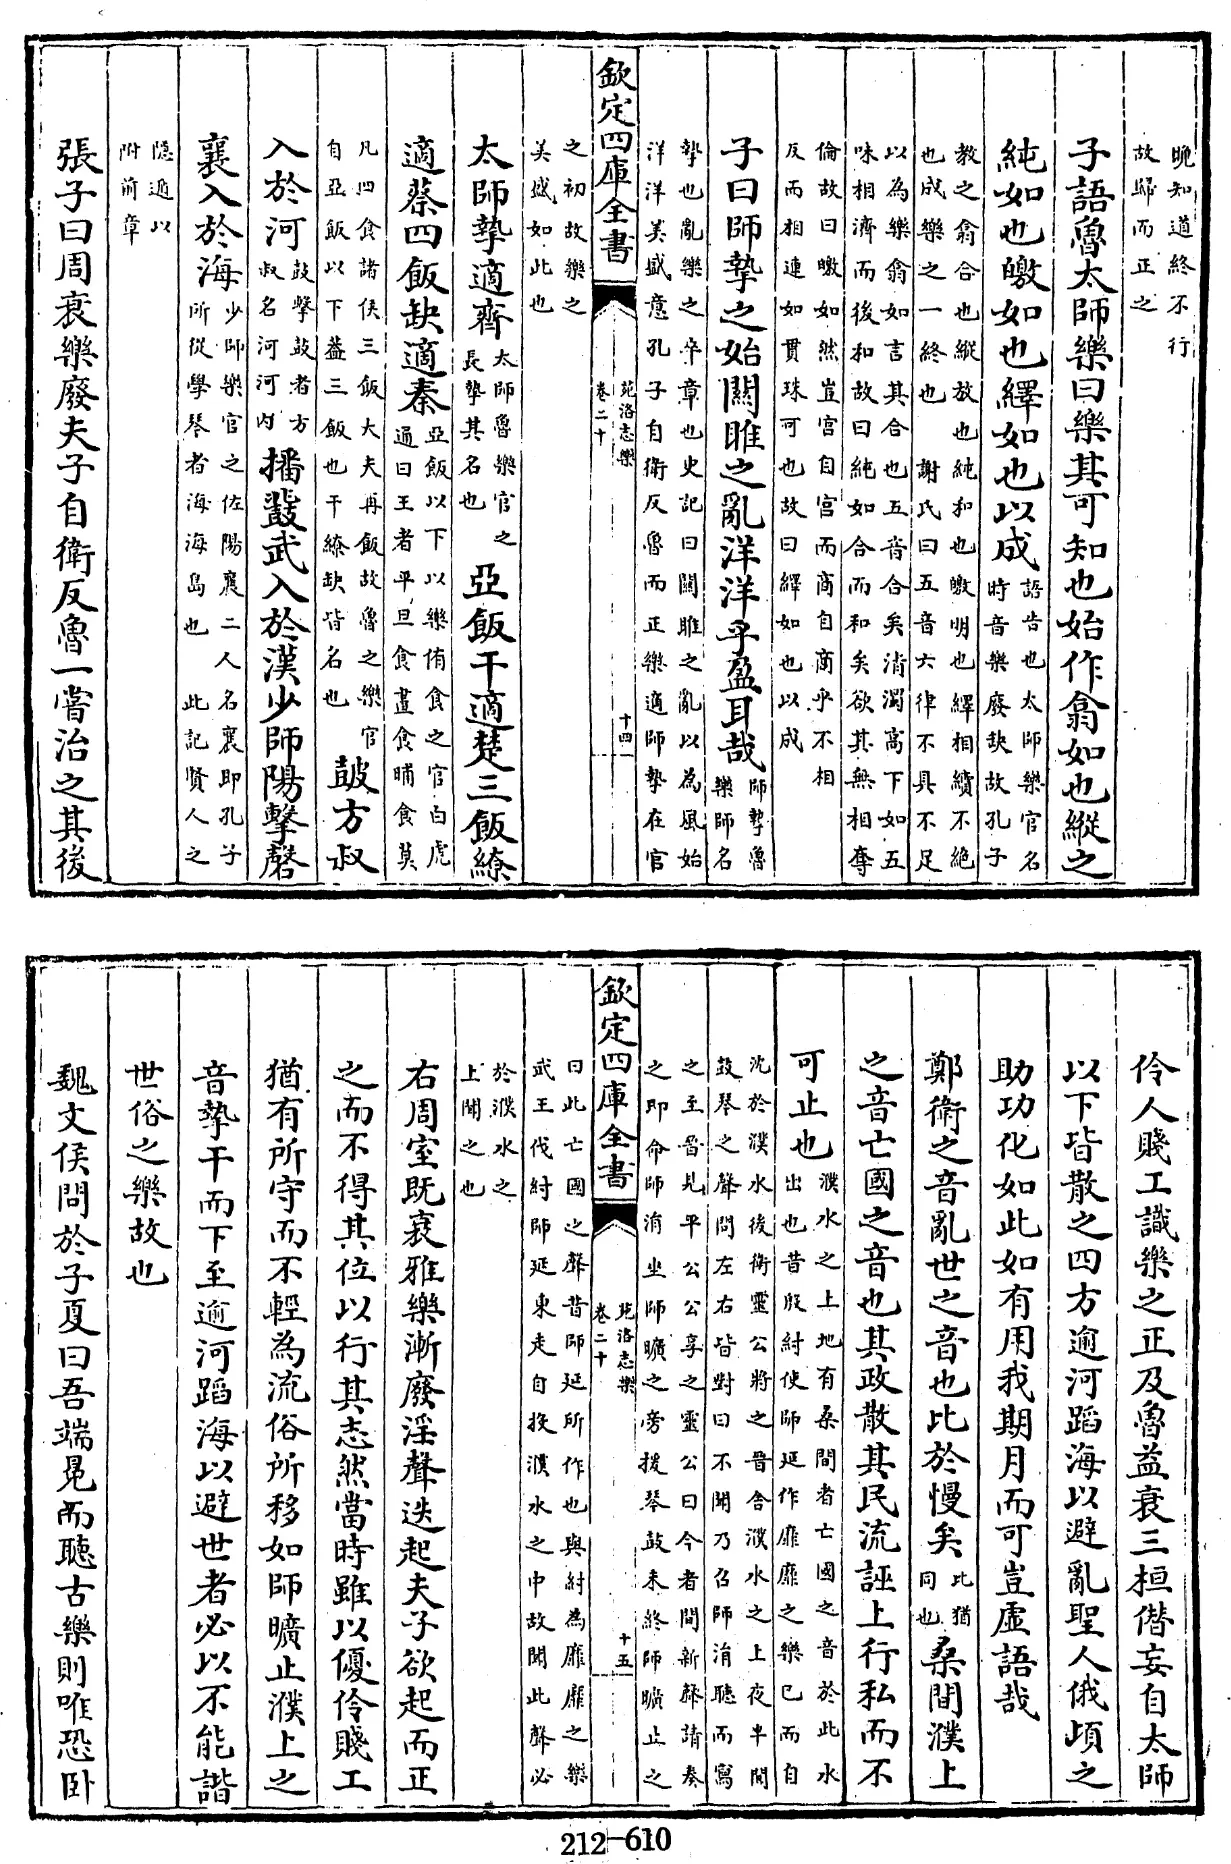 晚知道終不行
故歸而正之
子語魯太師樂曰樂其可知也始作翕如也縱之
純如也皦如也繹如也以成
語告也太師樂官名
時音樂廢缺故孔子
教之翕合也縱放也純和也皦明也繹相續不絶
也成樂之一終也 謝氏曰五音六律不具不足
以為樂翕如言其合也五音合矣清濁高下如五
味相濟而後和故曰純如合而和矣欲其無相奪
倫故曰皦如然豈宫自宫而商自商乎不相
反而相連如貫珠可也故曰繹如也以成
子曰師摯之始關雎之亂洋洋乎盈耳哉
師摯魯
樂師名
摯也亂樂之卒章也史記曰關雎之亂以為風始
洋洋美盛意孔子自衛反魯而正樂適師摯在官
欽定四庫全書
苑洛志樂
卷二十
十四
之初故樂之
美盛如此也
太師摯適齊
太師魯樂官之
長摯其名也
亞飯干適楚三飯繚
適蔡四飯缺適秦
亞飯以下以樂侑食之官白虎
通曰王者平旦食晝食晡食莫
凡四食諸侯三飯大夫再飯故魯之樂官
自亞飯以下葢三飯也干繚缺皆名也
鼓方叔
入於河
鼓擊鼓者方
叔名河河内
播鼗武入於漢少師陽擊磬
襄入於海
少師樂官之佐陽襄二人名襄即孔子
所從學琴者海海島也 此記賢人之
隱遁以
附前章
張子曰周衰樂廢夫子自衛反魯一嘗治之其後
伶人賤工識樂之正及魯益衰三桓僭妄自太師
以下皆散之四方逾河蹈海以避亂聖人俄頃之
助功化如此如有用我期月而可豈虛語哉
鄭衛之音亂世之音也比於慢矣
比猶
同也
桑間濮上
之音亡國之音也其政散其民流誣上行私而不
可止也
濮水之上地有桑間者亡國之音於此水
出也昔殷紂使師延作靡靡之樂已而自
沈於濮水後衛靈公將之晉舍濮水之上夜半聞
鼓琴之聲問左右皆對曰不聞乃召師涓聽而寫
之至晉見平公公享之靈公曰今者聞新聲請奏
之即命師涓坐師曠之旁援琴鼓未終師曠止之
欽定四庫全書
苑洛志樂
卷二十
十五
曰此亡國之聲昔師延所作也與紂為靡靡之樂
武王伐紂師延東走自投濮水之中故聞此聲必
於濮水之
上聞之也
右周室既衰雅樂漸廢淫聲迭起夫子欲起而正
之而不得其位以行其志然當時雖以優伶賤工
猶有所守而不輕為流俗所移如師曠止濮上之
音摯干而下至逾河蹈海以避世者必以不能諧
世俗之樂故也
魏文侯問於子夏曰吾端冕而聽古樂則唯恐卧
212-610